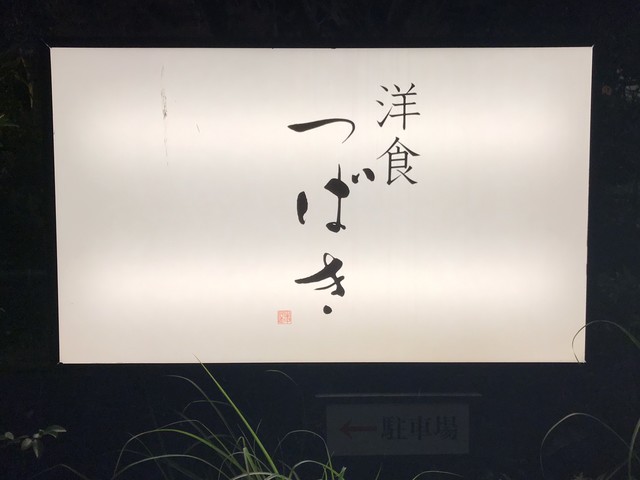 洋食
つばき
←駐車場